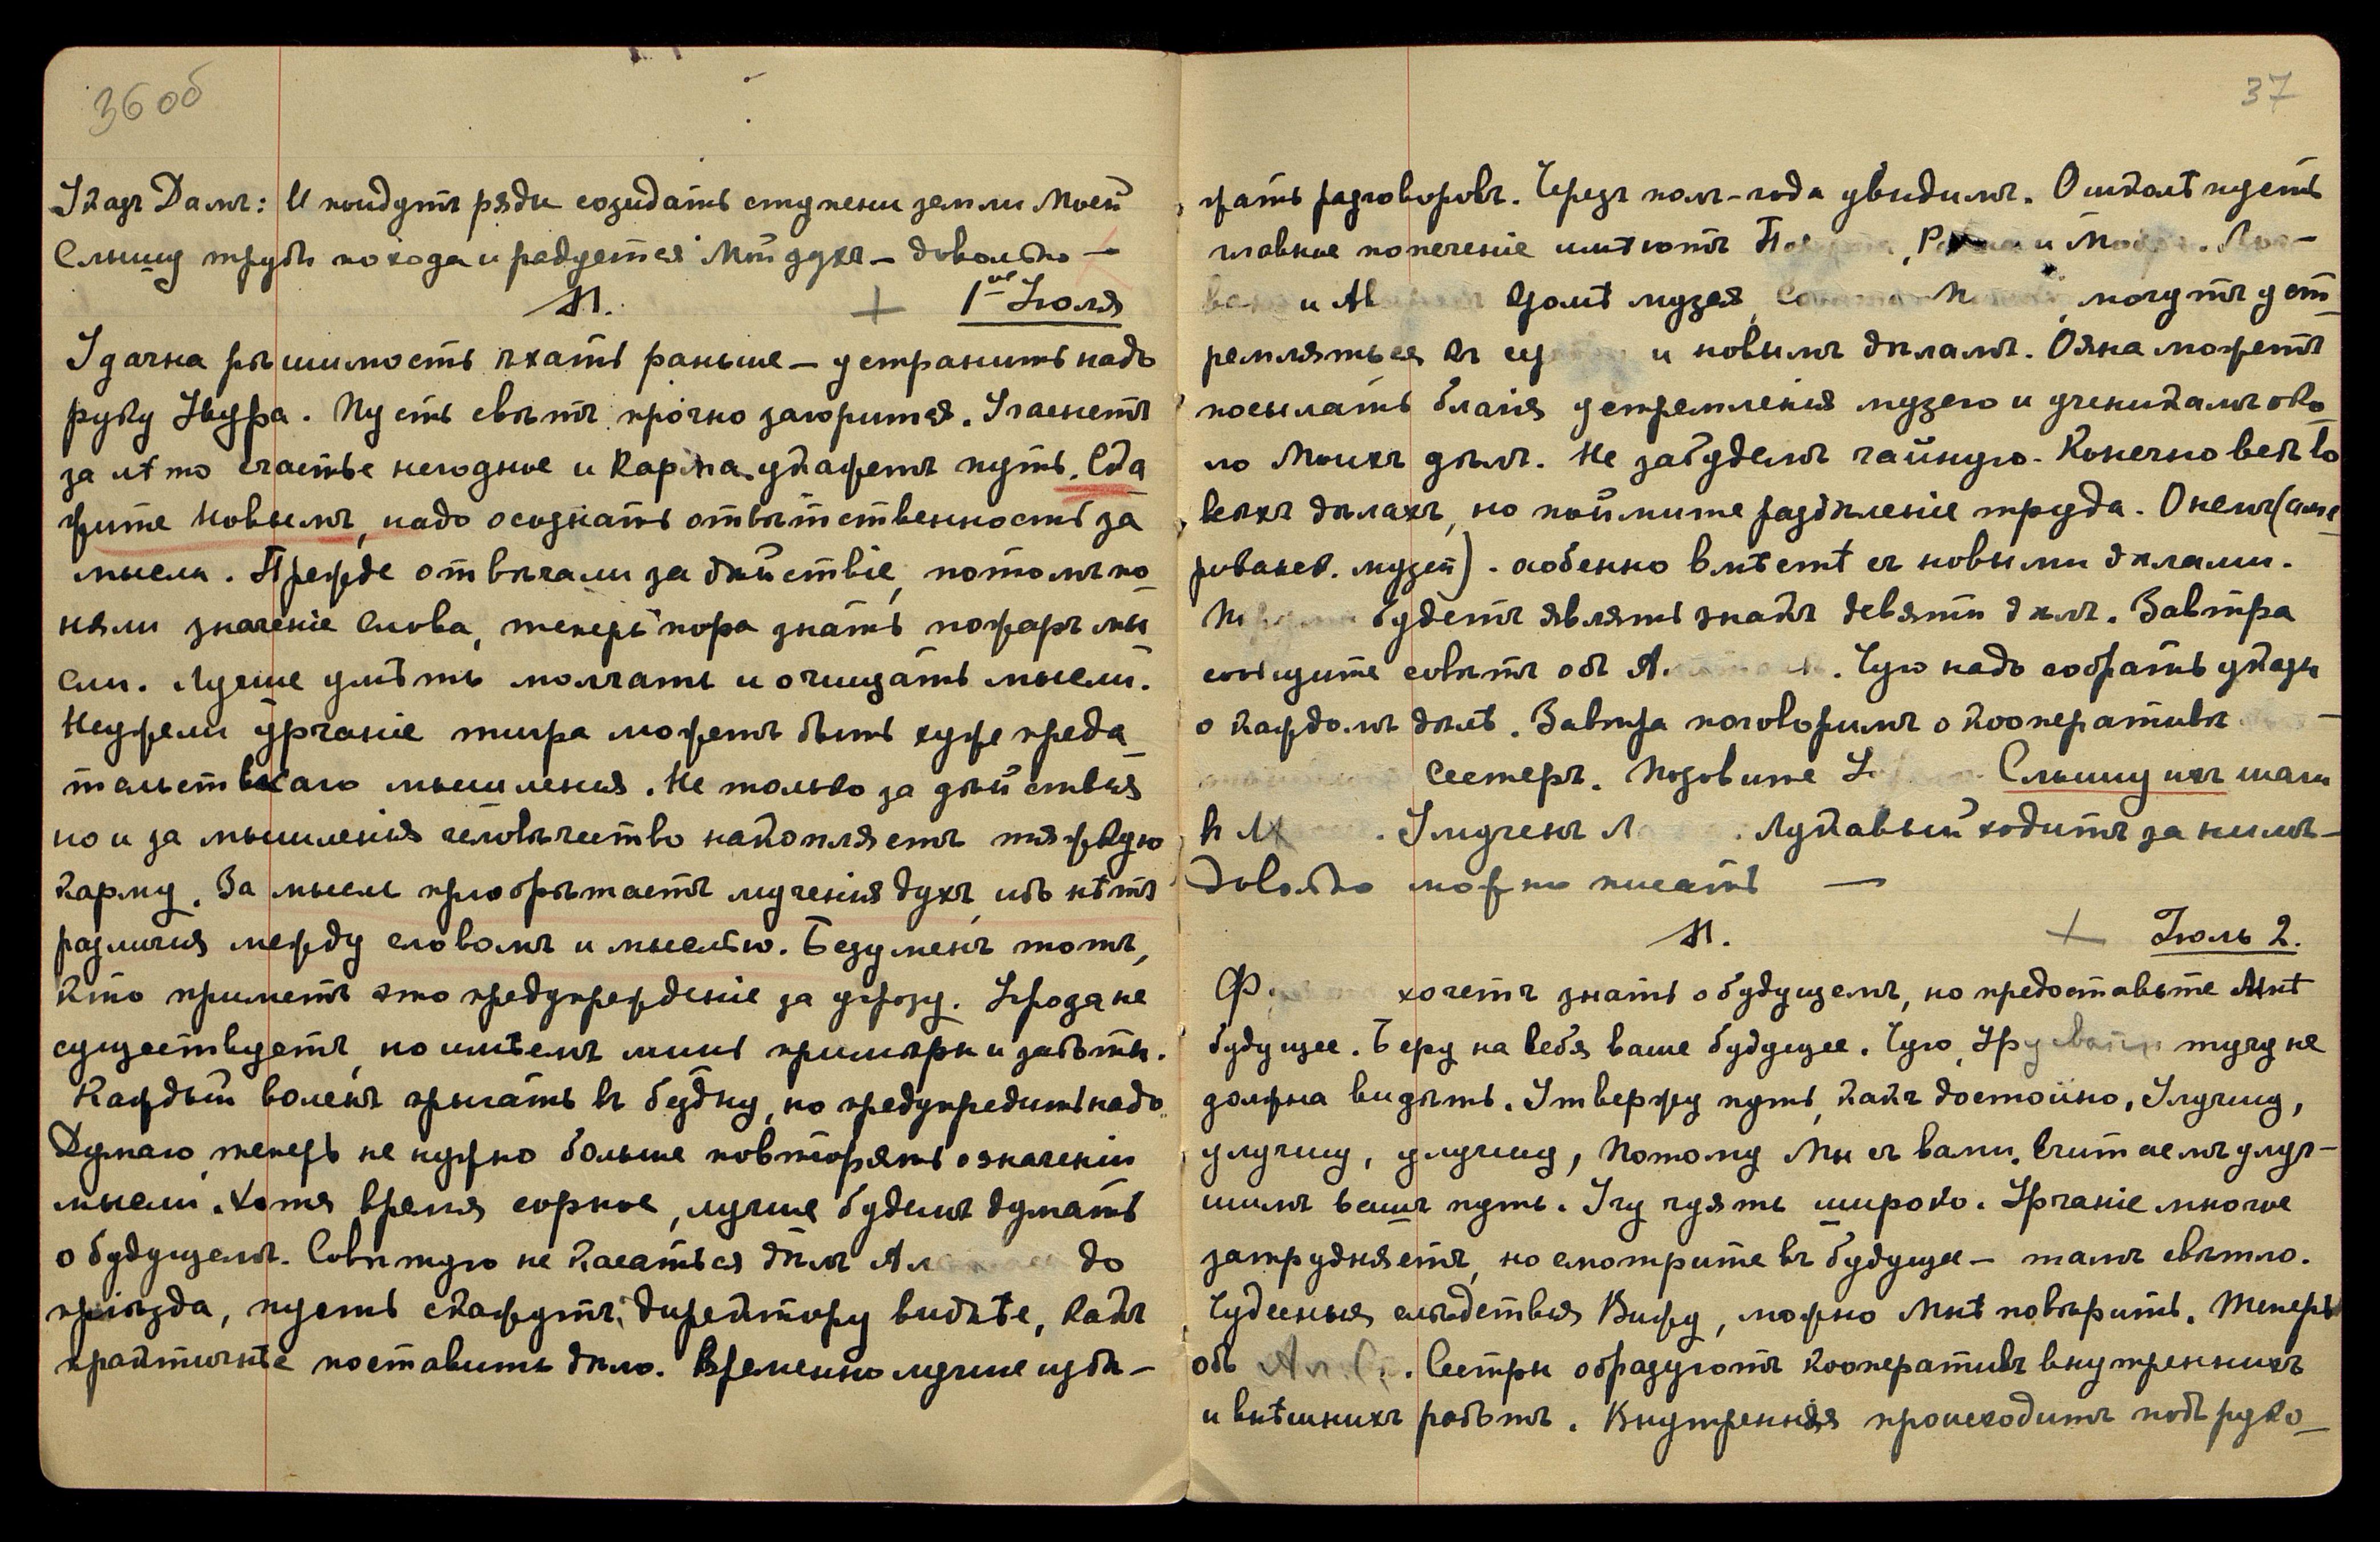 36об
Указъ Дамъ: И пойдутъ ряды созидать ступени земли Моей
Слышу трубы похода и радуется Мой духъ — довольно —
М. + 1ое Іюля
Удачна рѣшимость ѣхать раньше — устранить надо
руку Угура. Пусть свѣтъ прочно загорится. Угаснетъ
за лѣто счастье негодное и Карма укажетъ путь. Ска
жите новымъ, надо осознать отвѣтственность за
мысли. Прежде отвѣчали за дѣйствіе, потомъ по
няли значеніе слова, теперь пора знать пожаръ мы
сли. Лучше умѣть молчать и очищать мысли.
Неужели урчаніе тигра можетъ быть хуже преда
тельскаго мышленія. Не только за дѣйствія
но и за мышленія человѣчество накопляетъ тяжкую
карму. За мысль пріобрѣтаетъ мученія духъ, ибо нѣтъ
различія между словомъ и мыслью. Безуменъ тотъ,
кто приметъ это предупрежденіе за угрозу. Угроза не
существуетъ, но имѣемъ лишь примѣры и заботы.
Каждый воленъ прыгать въ бездну, но предупредить надо.
Думаю, теперь не нужно больше повторять о значеніи
мысли. Хотя время сорное, лучше будемъ думать
о будущемъ. Совѣтую не касаться дѣлъ Ал до
пріѣзда, пусть скажутъ: директору виднѣе, какъ
практичнѣе поставить дѣло. Временно лучше избѣ-
37
жать разговоровъ. Черезъ полъ-года увидимъ. О школѣ пусть
главное попеченіе имѣютъ и
и кромѣ музея могутъ уст
ремляться къ и новымъ дѣламъ. Ояна можетъ
посылать благія устремленія музею и ученикамъ око
ло Моихъ дѣлъ. Не забудемъ чайную. Конечно всѣ во
всѣхъ дѣлахъ, но поймите раздѣленіе труда. О немъ
музей). особенно вмѣстѣ съ новыми дѣлами.
будетъ являть знакъ девяти дѣлъ. Завтра
сообщите совѣтъ объ А. Чую надо собрать указы
о каждомъ дѣлѣ. Завтра поговоримъ о кооперативѣ
сестеръ. Позовите Слышу ихъ шаги
Измученъ Л Лукавый ходитъ за нимъ —
Довольно можно писать —
М. + Іюль 2.
хочетъ знать о будущемъ, но предоставьте Мнѣ
будущее. Беру на Себя ваше будущее. Чую, тучу не
должна видѣть. Утвержу путь, какъ достойно. Улучшу,
улучшу, улучшу, потому Мы съ вами. Считаемъ улуч-
шимъ вашъ путь. Учу чуять широко. Урчаніе многое
затрудняетъ, но смотрите въ будущее — тамъ свѣтло.
Чудесныя слѣдствія Вижу, можно Мнѣ повѣрить. Теперь
объ Ал. Сестры образуютъ кооперативъ внутреннихъ
и внѣшнихъ работъ. Внутренняя происходитъ подъ руко-